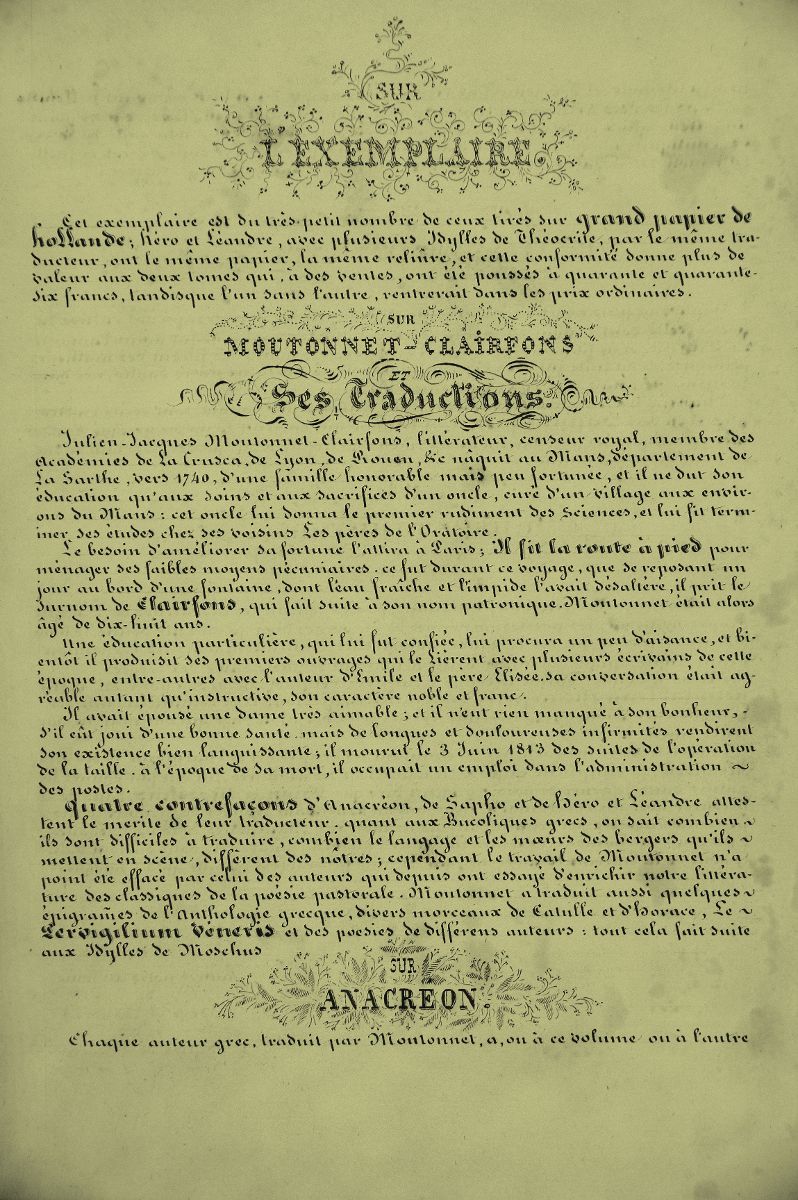 SUR
L'EXEMPLAIRE.
Cet exemplaire est du très-petit nombre de ceux tirés sur grand papier de
hollande; héro et Léandre, avec plusieurs Idylles de Théocrite, par le même tra-
ducteur, ont le même papier, la même reliûre, et cette conformité donne plus de
valeur aux deux tomes qui, à des ventes, ont été poussés à quarante et quarante-
six francs, tandisque l'un sans l'autre, rentrerait dans les prix ordinaires.
SUR
MOUTONNET-CLAIRFONS
ET
Ses Traductions.
Julien-Jacques Moutonnet-Clairfons, littérateur, censeur royal, membre des
Académies de La Crusca, de Lyon, de Rouen, &c nâquit au Mans, département de
La Sarthe, vers 1740, d'une famille honorable mais peu fortunée, et il ne dut son
éducation qu'aux soins et aux sacrifices d'un oncle, curé d'un village aux envir-
ons du Mans: cet oncle lui donna le premier rudiment des Sciences, et lui fit term-
iner ses études chez ses voisins Les pères de l'Oratoire.
Le besoin d'améliorer sa fortune l'attira à Paris; Il fit la route à pied pour
ménager ses faibles moyens pécuniaires. ce fut durant ce voyage, que se reposant un
jour au bord d'une fontaine, dont l'eau fraîche et limpide l'avait désaltéré, il prit le
surnom de Clairfons, qui fait suite à son nom patronique. Moutonnet était alors
âgé de dix-huit ans.
Une éducation particulière, qui lui fut confiée, lui procura un peu d'aisance, et bi-
entôt il produisit ses premiers ouvrages qui le Lièrent avec plusieurs écrivains de cette
époque, entre-autres avec l'auteur d'Emile et le père Elisée. sa conversation était ag-
réable autant qu'instructive, son caractère noble et franc.
Il avait épousé une dame très aimable; et il n'eut rien manqué à son bonheur, -
s'il eût joui d'une bonne santé. mais de longues et douloureuses infirmités rendirent
son existence bien languissante; il mourut le 3 Juin 1813 des suites de l'opération
de la taille. à l'époque de sa mort, il occupait un emploi dans l'administration ~
des postes.
Quatre contrefaçons d'Anacréon, de Sapho et de héro et Léandre attes-
tent le mérite de leur traducteur. quant aux Bucoliques grecs, on sait combien ~
ils sont difficiles à traduire, combien le langage et les mœurs des bergers qu'ils ~
mettent en scène, diffèrent des notres; cependant le travail de Moutonnet n'a
point été effacé par celui des auteurs qui depuis ont essayé d'enrichir notre littéra-
ture des classiques de la poésie pastorale. Moutonnet a traduit aussi quelques ~
épigram̃es de l'Anthologie grecque, divers morceaux de Catulle et d'horace, Le ~
Pervigilium Veneris et des poesies de différens auteurs: tout cela fait suite
aux Idylles de Moschus
SUR
ANACRÉON.
Chaque auteur grec, traduit par Moutonnet, a, ou à ce volume ou à l'autre